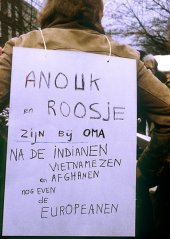 ANOUK
en ROOSJE
ZIJN BIJ OMA
NA DE INDIANEN
VIETNAMEZEN
en AFGHANEN
NOG EVEN
de
EUROPEANEN